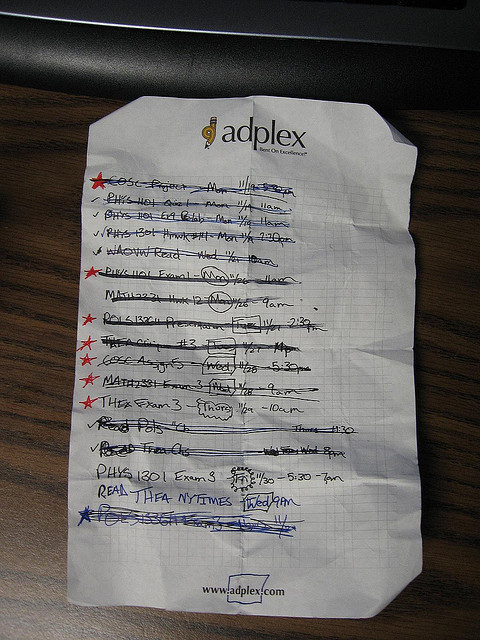 adplex
Bent On Excellence!
COSC Project - Mon 11/19 5:30pm
PHYS 1101 Quiz 1 Mon 11/19 11am
PHYS 1101 Lab Mon 11/19 11am
PHYS 1301 Hmwk #11 Mon 11/19 2:30pm
Read Wed 10am
PHYS 1101 Exam 1 - Mon 11/26 - 11am
MATH 2331 Hmk 12 Mon 11/26 - 9am
POLS 1336H Tue 11/27 2:30pm
THEA #3 Tue 11/27
COSC Assign 5 - Wed 11/28 - 5:30pm
MATH 2331 Exam 3 Wed 11/28 - 9am
THEA Exam 3 - Thurs 11/29 - 10am
Read Pols Chs Thurs 11:30
Read Thea Chs Wed
PHYS 1301 Exam 3 - Fri 11/30 - 5:30 - 7pm
READ THEA NYTIMES Wed/9AM
POLS 1336H Exam 3
www.adplex.com